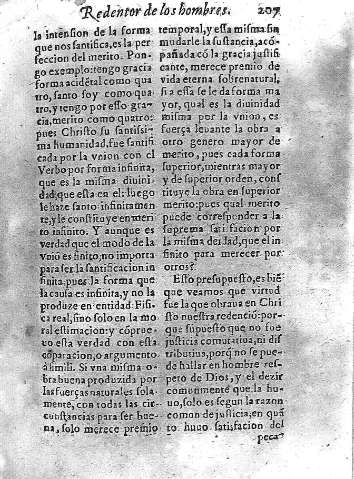 Redentor de los hombres. 207
la intension de la forma
que nos santifica, es la per-
feccion del merito. Pon-
go exemplo: tengo gracia
forma acidētal como qua
tro, santo soy como qua-
tro, y tengo por esso gra-
cia, merito como quatro:
pues Christo su santissi-
ma humanidad, fue santifi
cada por la vnion con el
Verbo por forma infinita,
que es la misma diuini-
dad, que esta en el: luego
le haze santo infinitamen
te, y le constituye en meri
to infinito. Y aunque es
verdad que el modo de la
vniō es finito, no importa
para ser la santificacion in
finita, pues la forma que
la causa es infinita, y no la
produze en entidad Fisi-
ca real, sino solo en la mo
ral estimacion: y cōprue-
uo esta verdad con esta
cōparacion, o argumento
à simili. Si vna misma o-
bra buena produzida por
las fuerças naturales sola-
mente, con todas las cir-
cunstancias para ser bue-
na, solo merece premio
temporal, y essa misma sin
mudarle la sustancia, acō-
pañada cō la gracia justifi
cante, merece premio de
vida eterna sobrenatural,
si a essa se le da forma ma
yor, qual es la diuinidad
misma por la vnion, es
fuerça leuante la obra a
otro genero mayor de
merito, pues cada forma
superior, mientras mayor
y de superior orden, cons
tituye la obra en superior
merito: pues qual merito
puede corresponder a la
suprema santificacion por
la misma deidad, que el in
finito para merecer por
otros?
Esso presupuesto, es biē
que veamos que virtud
fue la que obraua en Chri
sto nuestra redenciō: por-
que supuesto que no fue
justicia comutatiua, ni dis
tributiua, porq̃ no se pue-
de hallar en hombre res-
pero de Dios, y el dezir
comunmente que la hu-
uo, solo es segun la razon
comun de justicia, en quā
to huuo satisfacion del
peca-